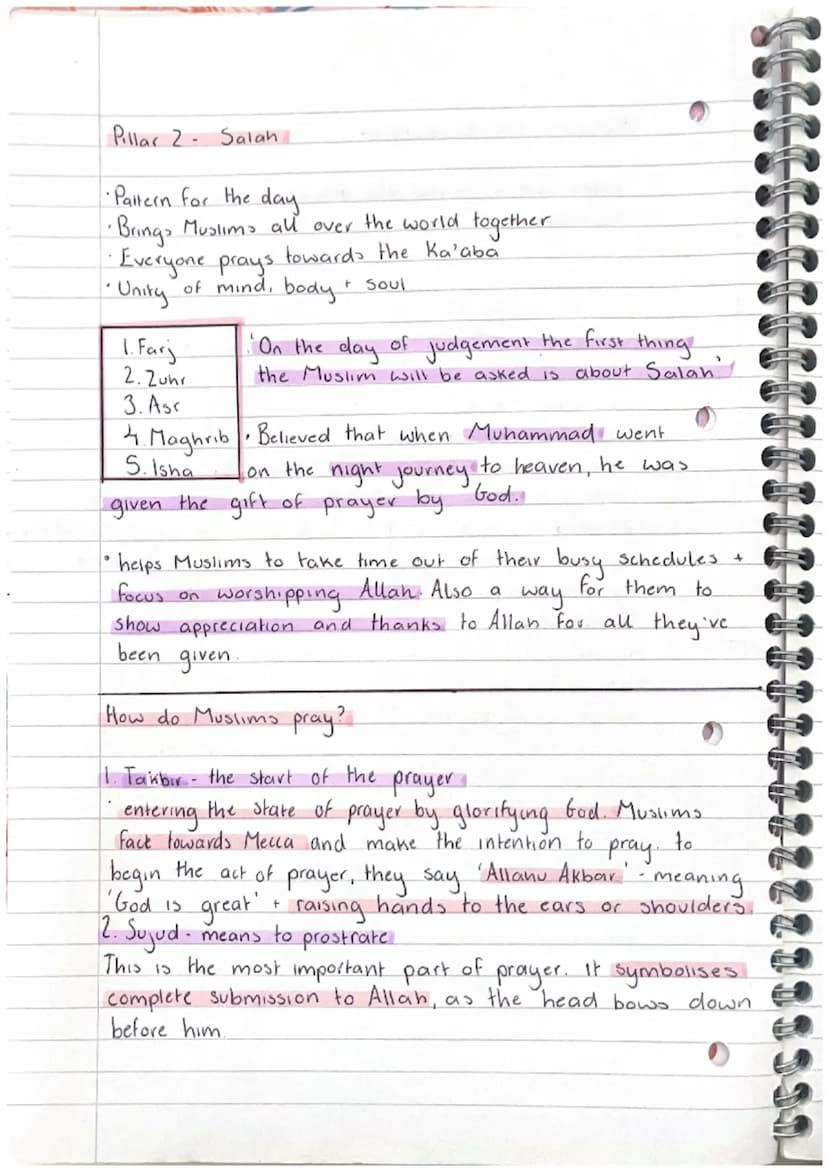 Pillar 2 - Salah
· Pattern for the day
· Brings Muslims all over the world together
· Everyone prays towards the Ka'aba
· Unity of mind, body + soul
1. Farj
2. Zuhr
3. Asr
4. Maghrib
5. Isha
'On the day of judgement the first thing
the Muslim will be asked is about Salah'
· Believed that when Muhammad went
on the night journey to heaven, he was
given the gift of prayer by God.
· helps Muslims to take time out of their busy schedules +
focus on worshipping Allah. Also a way for them to
show appreciation and thanks to Allah for all they've
been given.
How do Muslims pray?
1. Takbir - the start of the prayer
· entering the state of prayer by glorifying God. Muslims
fact towards Mecca and make the intention to pray. to
begin the act of prayer, they say 'Allahu Akbar' - meaning
'God is great' + raising hands to the ears or shoulders.
2. Sujud - means to prostrate
This is the most important part of prayer. It symbolises
complete submission to Allah, as the head bows down
before him.